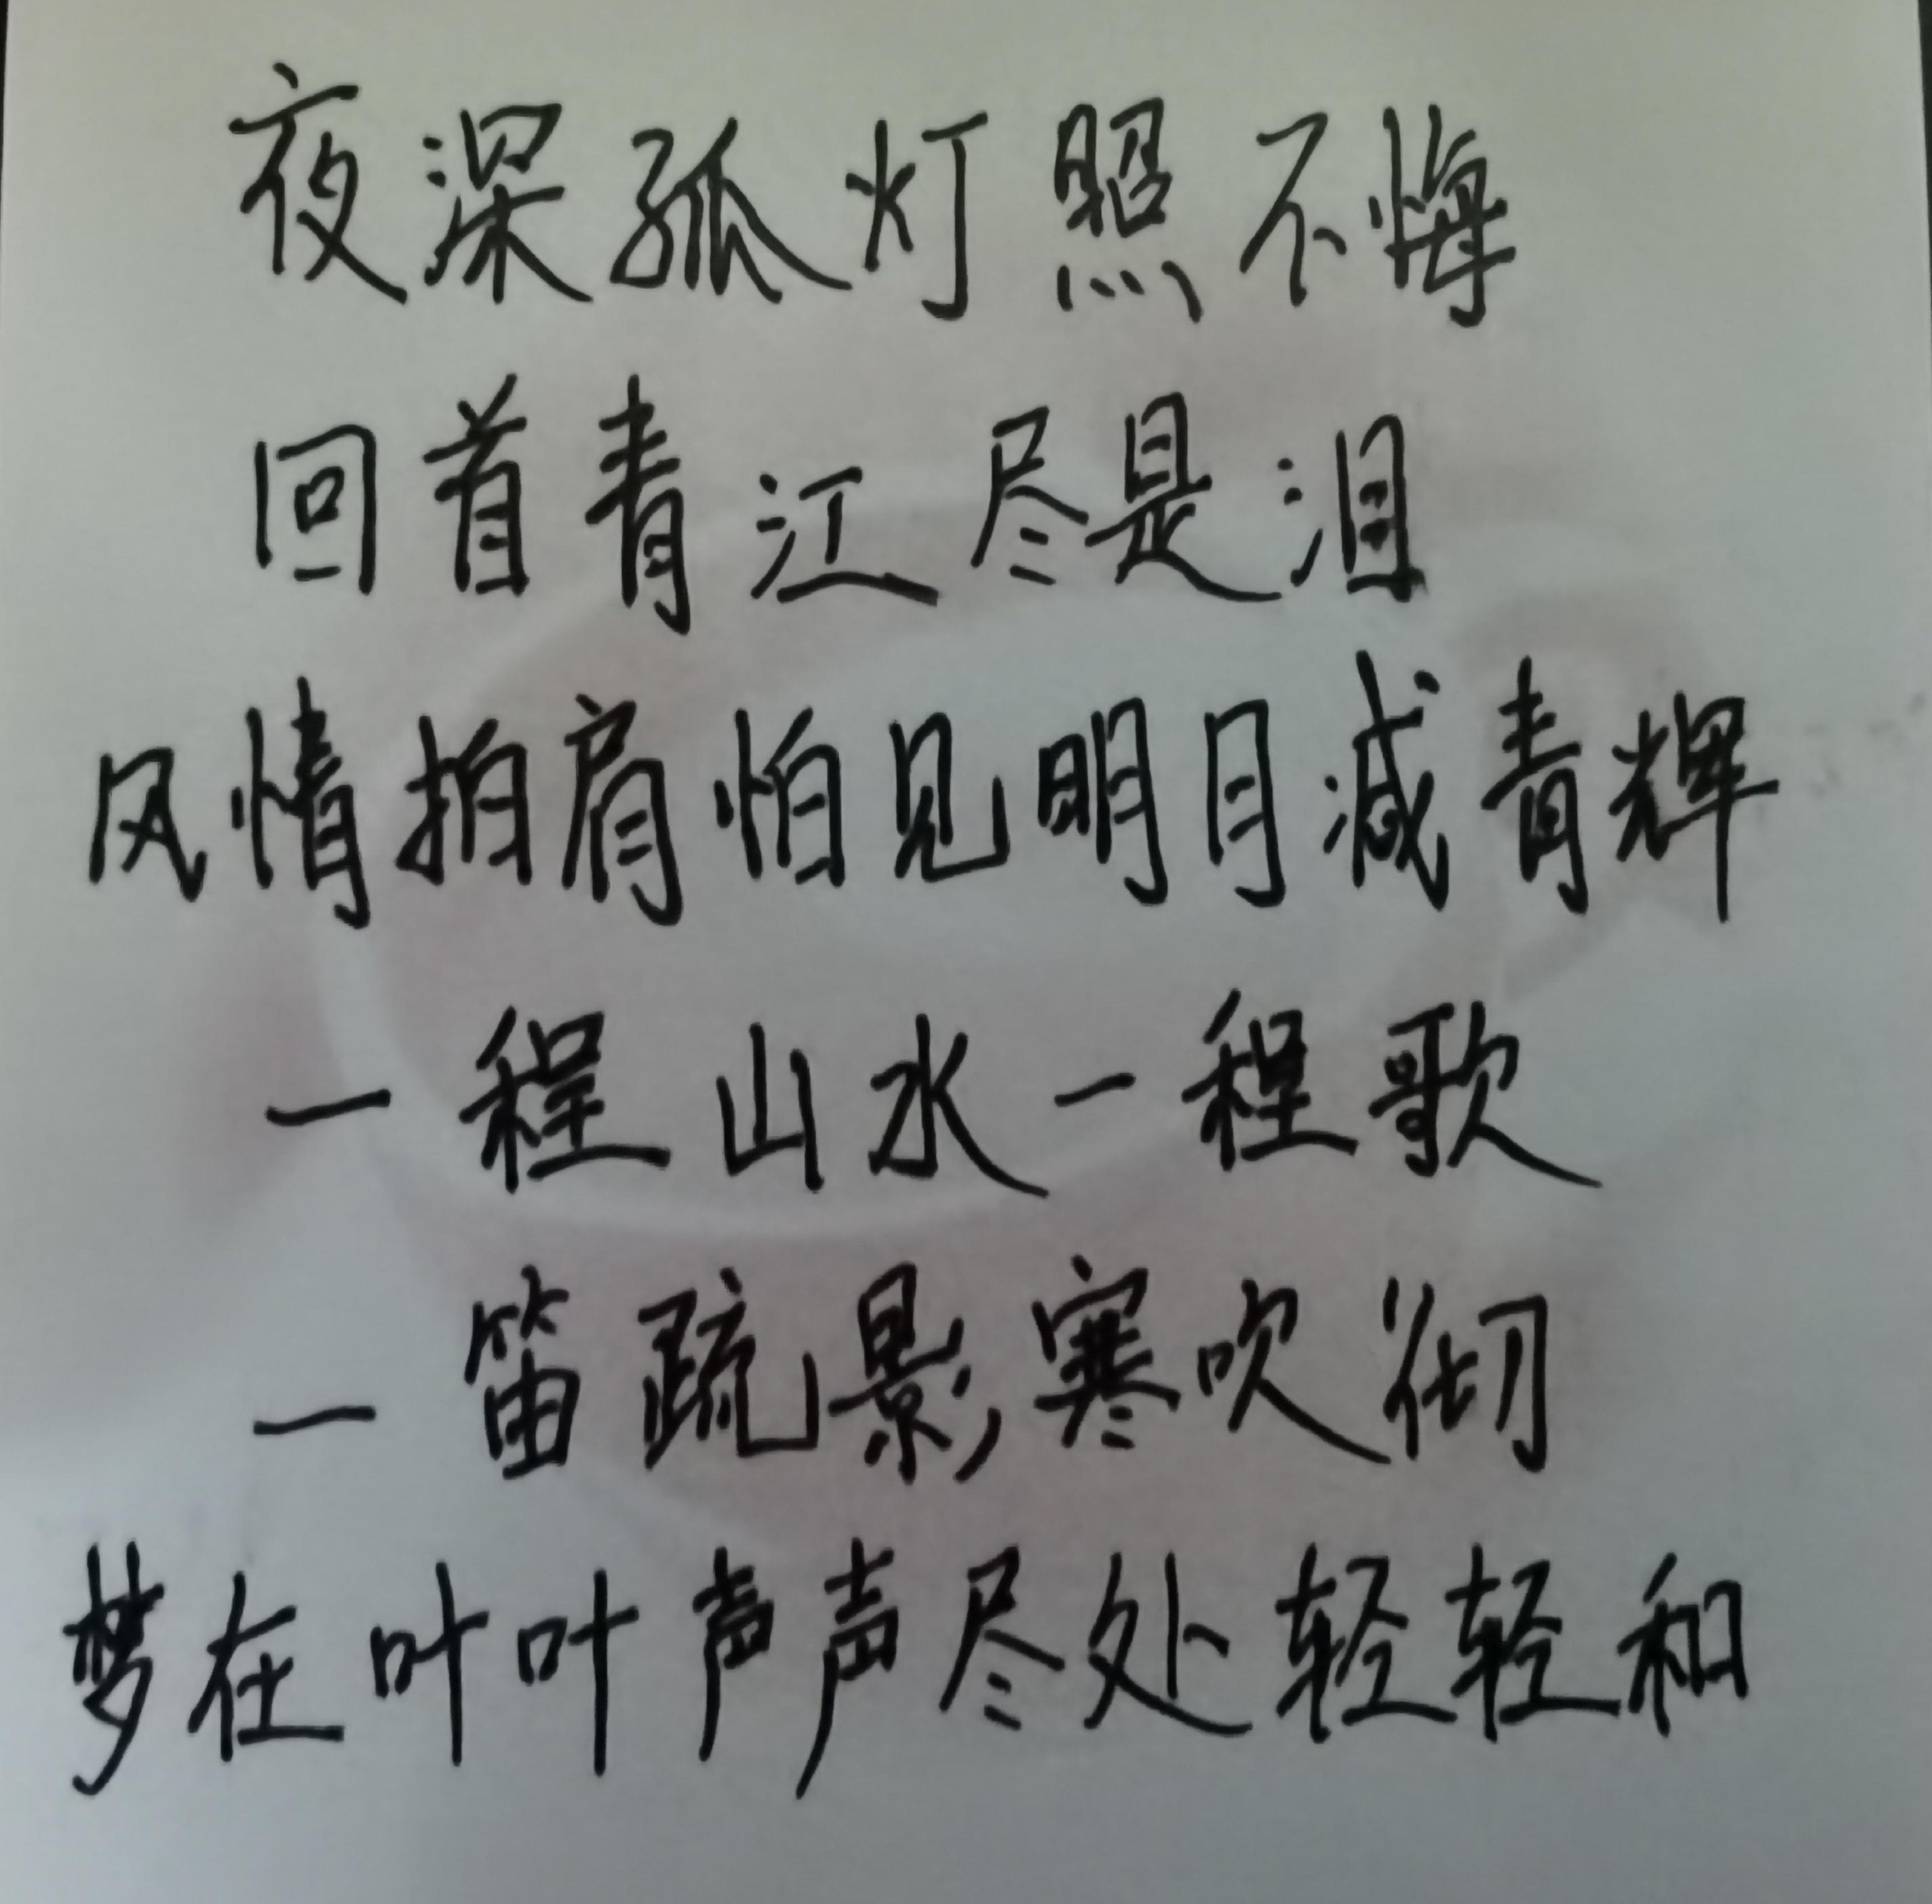 夜深孤灯照不悔
回首青江尽是泪
风情拍肩怕见明月减青辉
一程山水一程歌
一笛疏影寒吹彻
梦在叶叶声声尽处轻轻和